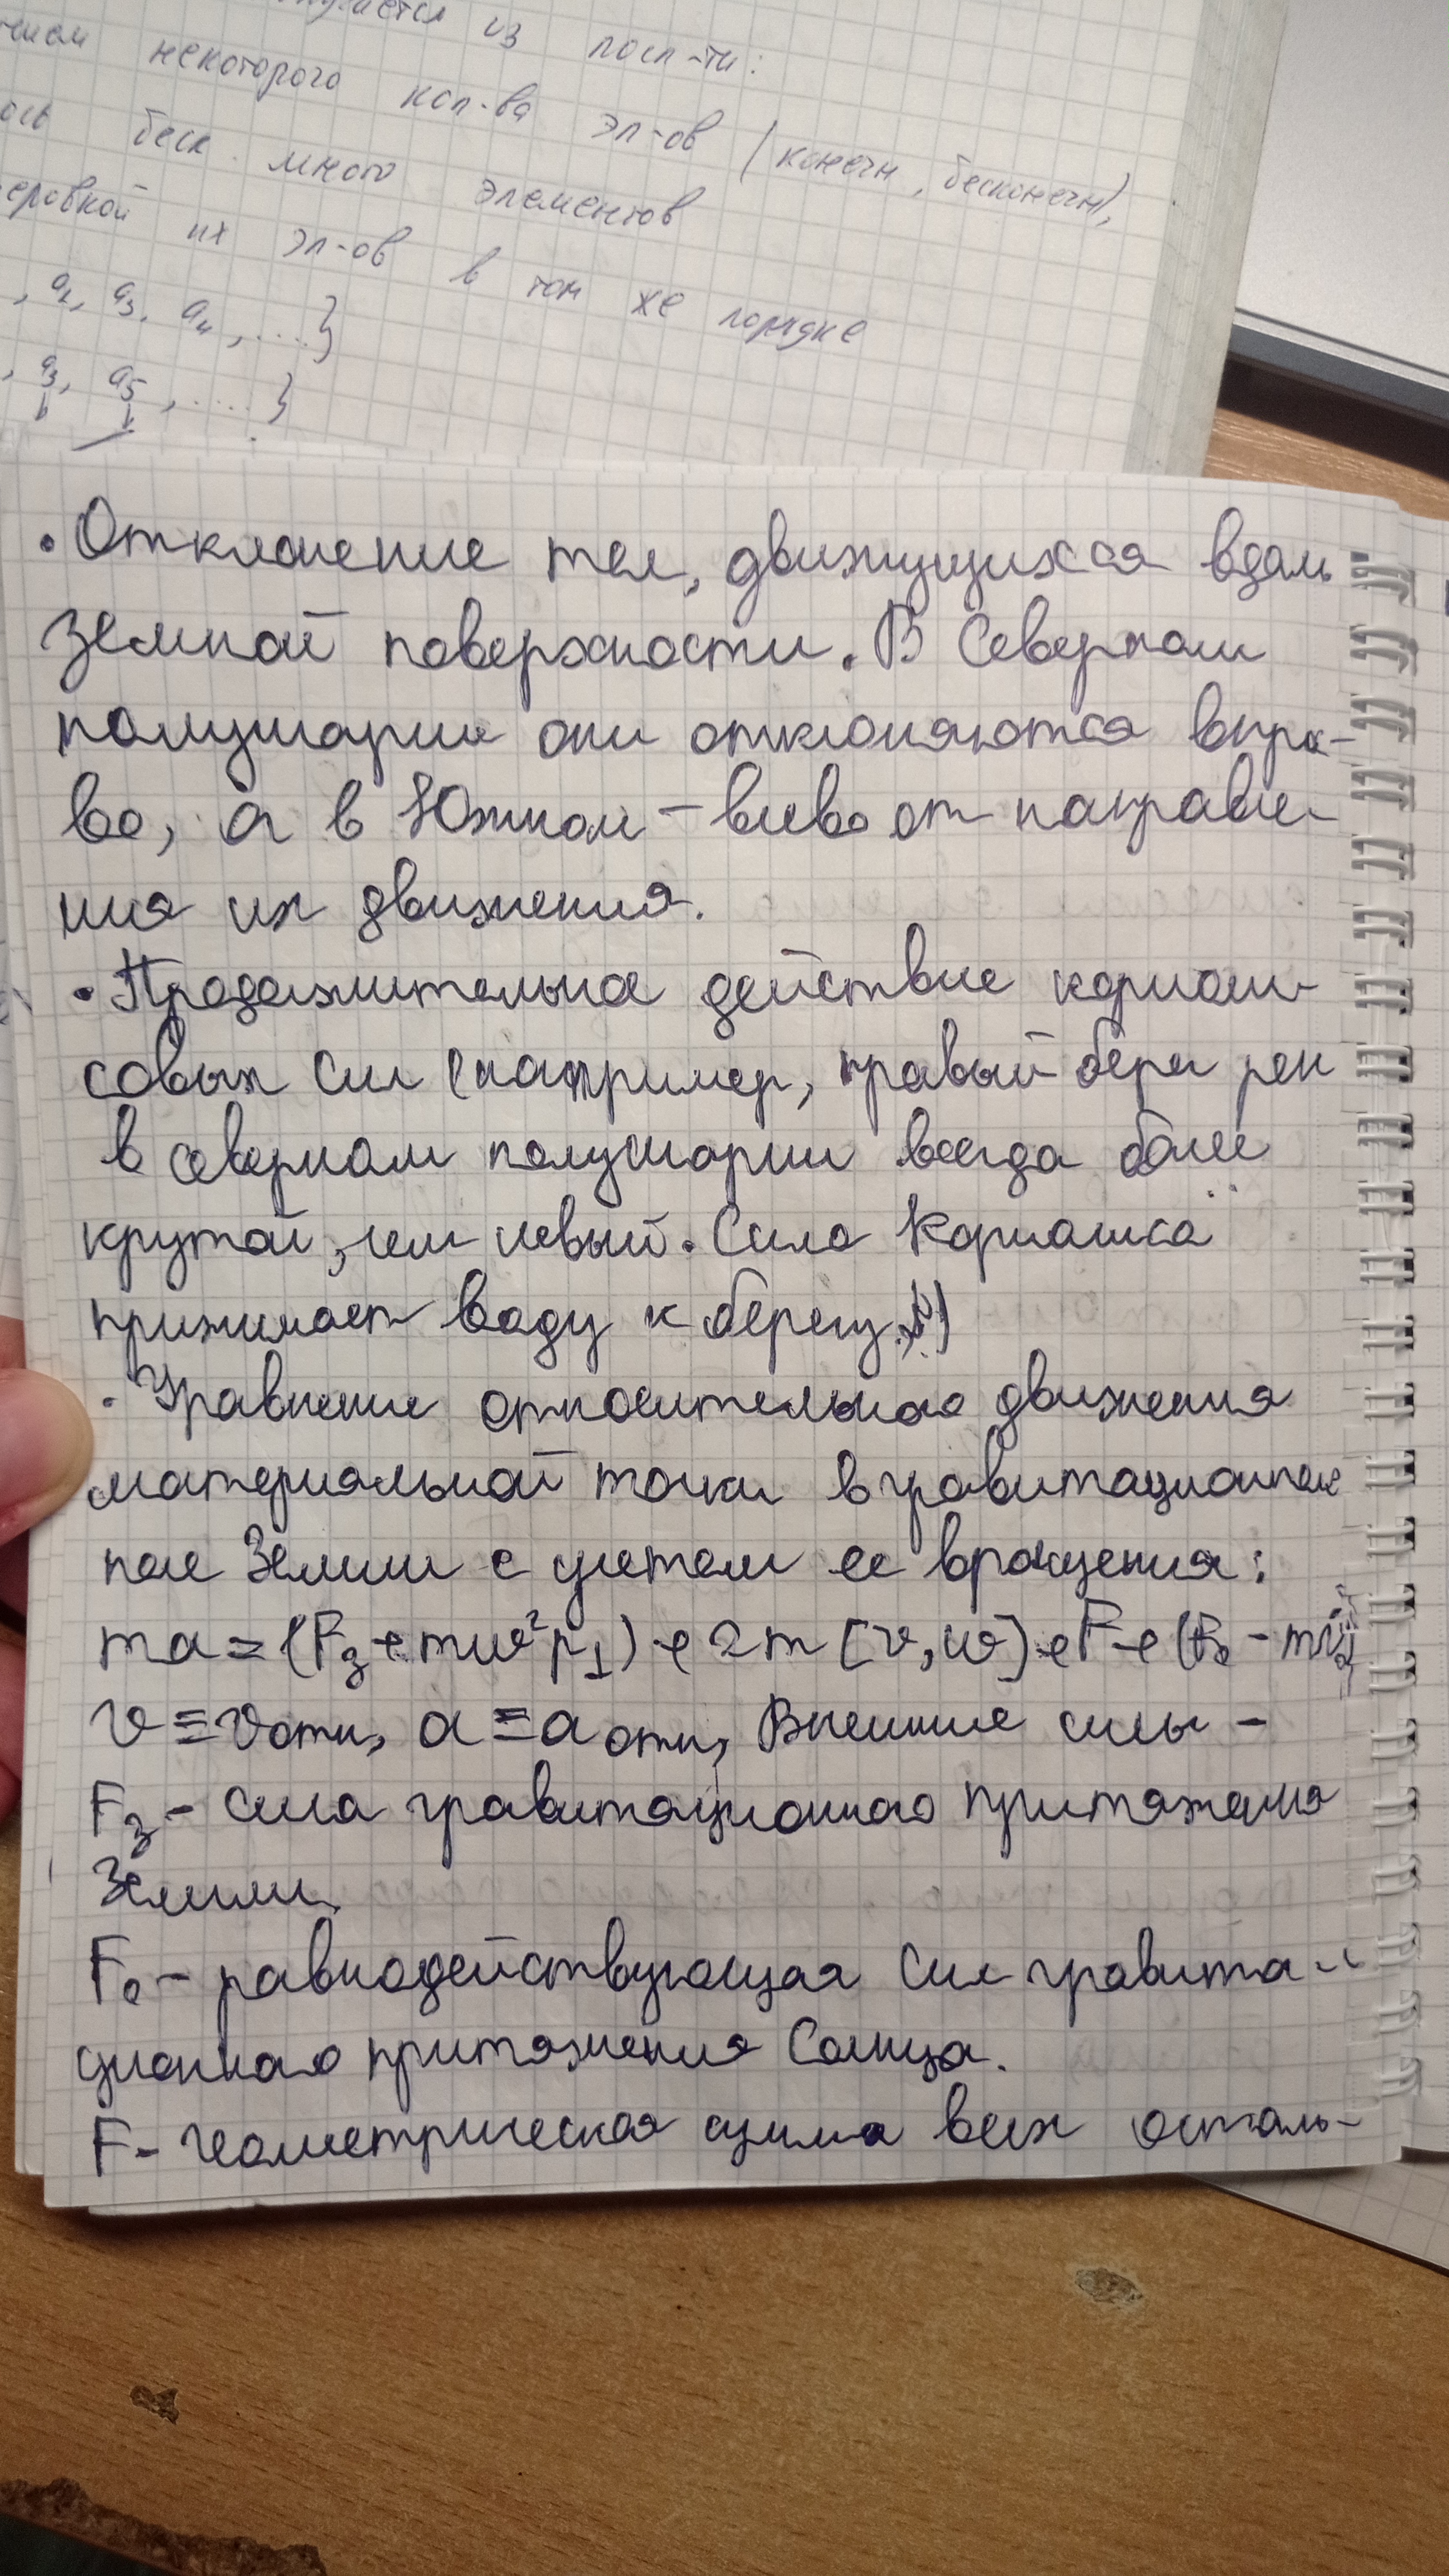 из посл-ти:
некоторого кол-ва эл-ов (конечн, бесконечн),
беск. много элементов
их эл-ов в том же порядке
, a₂, a₃, a₄, ....}
, a₃, a₅, .... }
• Отклонение тел, движущихся вдоль
земной поверхности. В Северном
полушарии они отклоняются впра-
во, а в Южном – влево от направле-
ния их движения.
• Продолжительное действие кориоли-
совых сил (например, правый берег рек
в северном полушарии всегда более
крутой, чем левый. Сила Кориолиса
прижимает воду к берегу.)
• Уравнение относительного движения
материальной точки в гравитационном
поле Земли с учетом ее вращения:
ma = (F₃ + mω²ρ⊥) + 2m [v, ω] + F + (F₀ - m
v ≡ vотн, a ≡ aотн, Внешние силы –
F₃ – сила гравитационного притяжения
Земли.
F₀ – равнодействующая сил гравита-
ционного притяжения Солнца.
F – геометрическая сумма всех осталь-